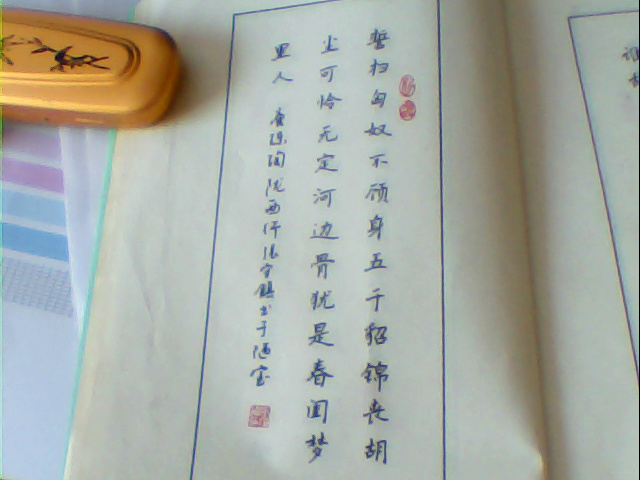 誓扫匈奴不顾身五千貂锦丧胡
尘可怜无定河边骨犹是春闺梦
里人 唐陈陶陇西行张守镇书于陋室